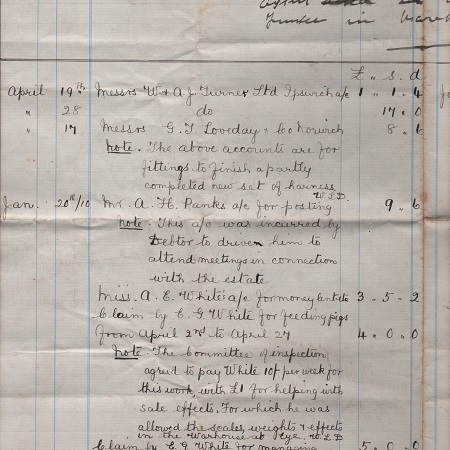 Trustee in
£ " s. d
April 19th Messrs W & A J Turner Ltd Ipswich a/c 1 " 1 " 4
" 28 do 17 " 0
" 17 Messrs G. T. Loveday & Co Norwich 8 " 6
Note. The above accounts are for
fittings to finish a partly
completed new set of harness W.L.D.
Jan. 20th/10 Mr. A. H. Panks a/c for posting 9 " 6
Note. This a/c was incurred by
Debtor to driven him to
attend meetings in connection
with the estate
Miss. A. E. White a/c for money lent etc 3 - 5 - 2
Claim by E. G White for feeding pigs
from April 2nd to April 27 4 " 0 " 0
Note. The Committee of inspection
agreed to pay White 10/- per week for
this work, with £1 for helping with
sale effects. For which he was
allowed the scales, weights & effects
in the warhouse at Eye. W.L.D
Claim by E. G White for managing 5 " 0 " 0